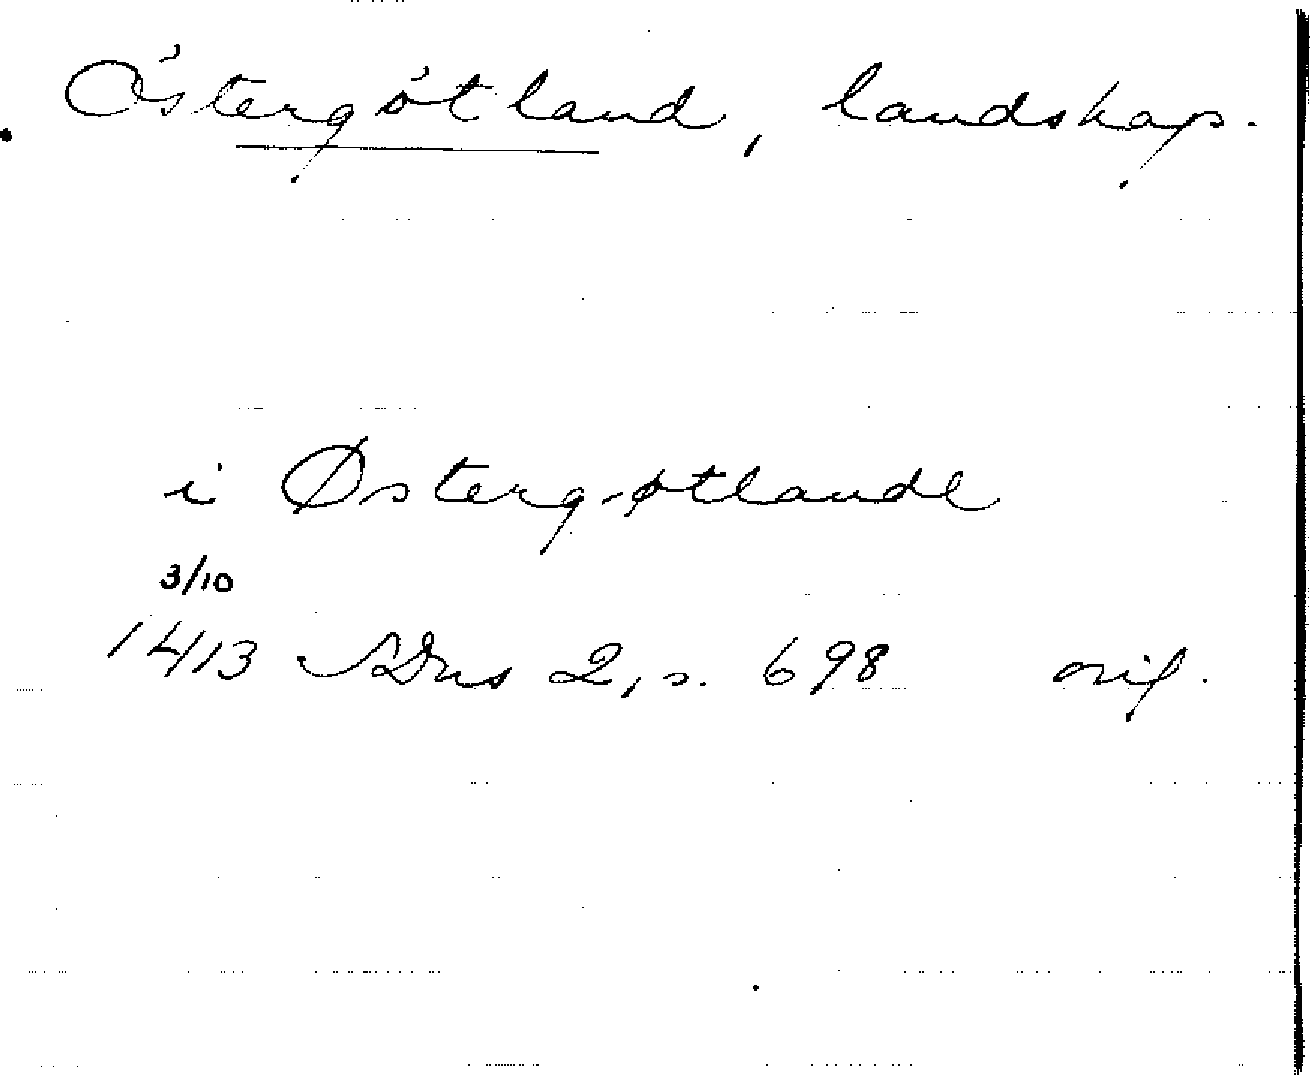 Östergötland, landskap.
i Østerg-øtlande
3/10
1413 SDns 2, s. 698 orig.